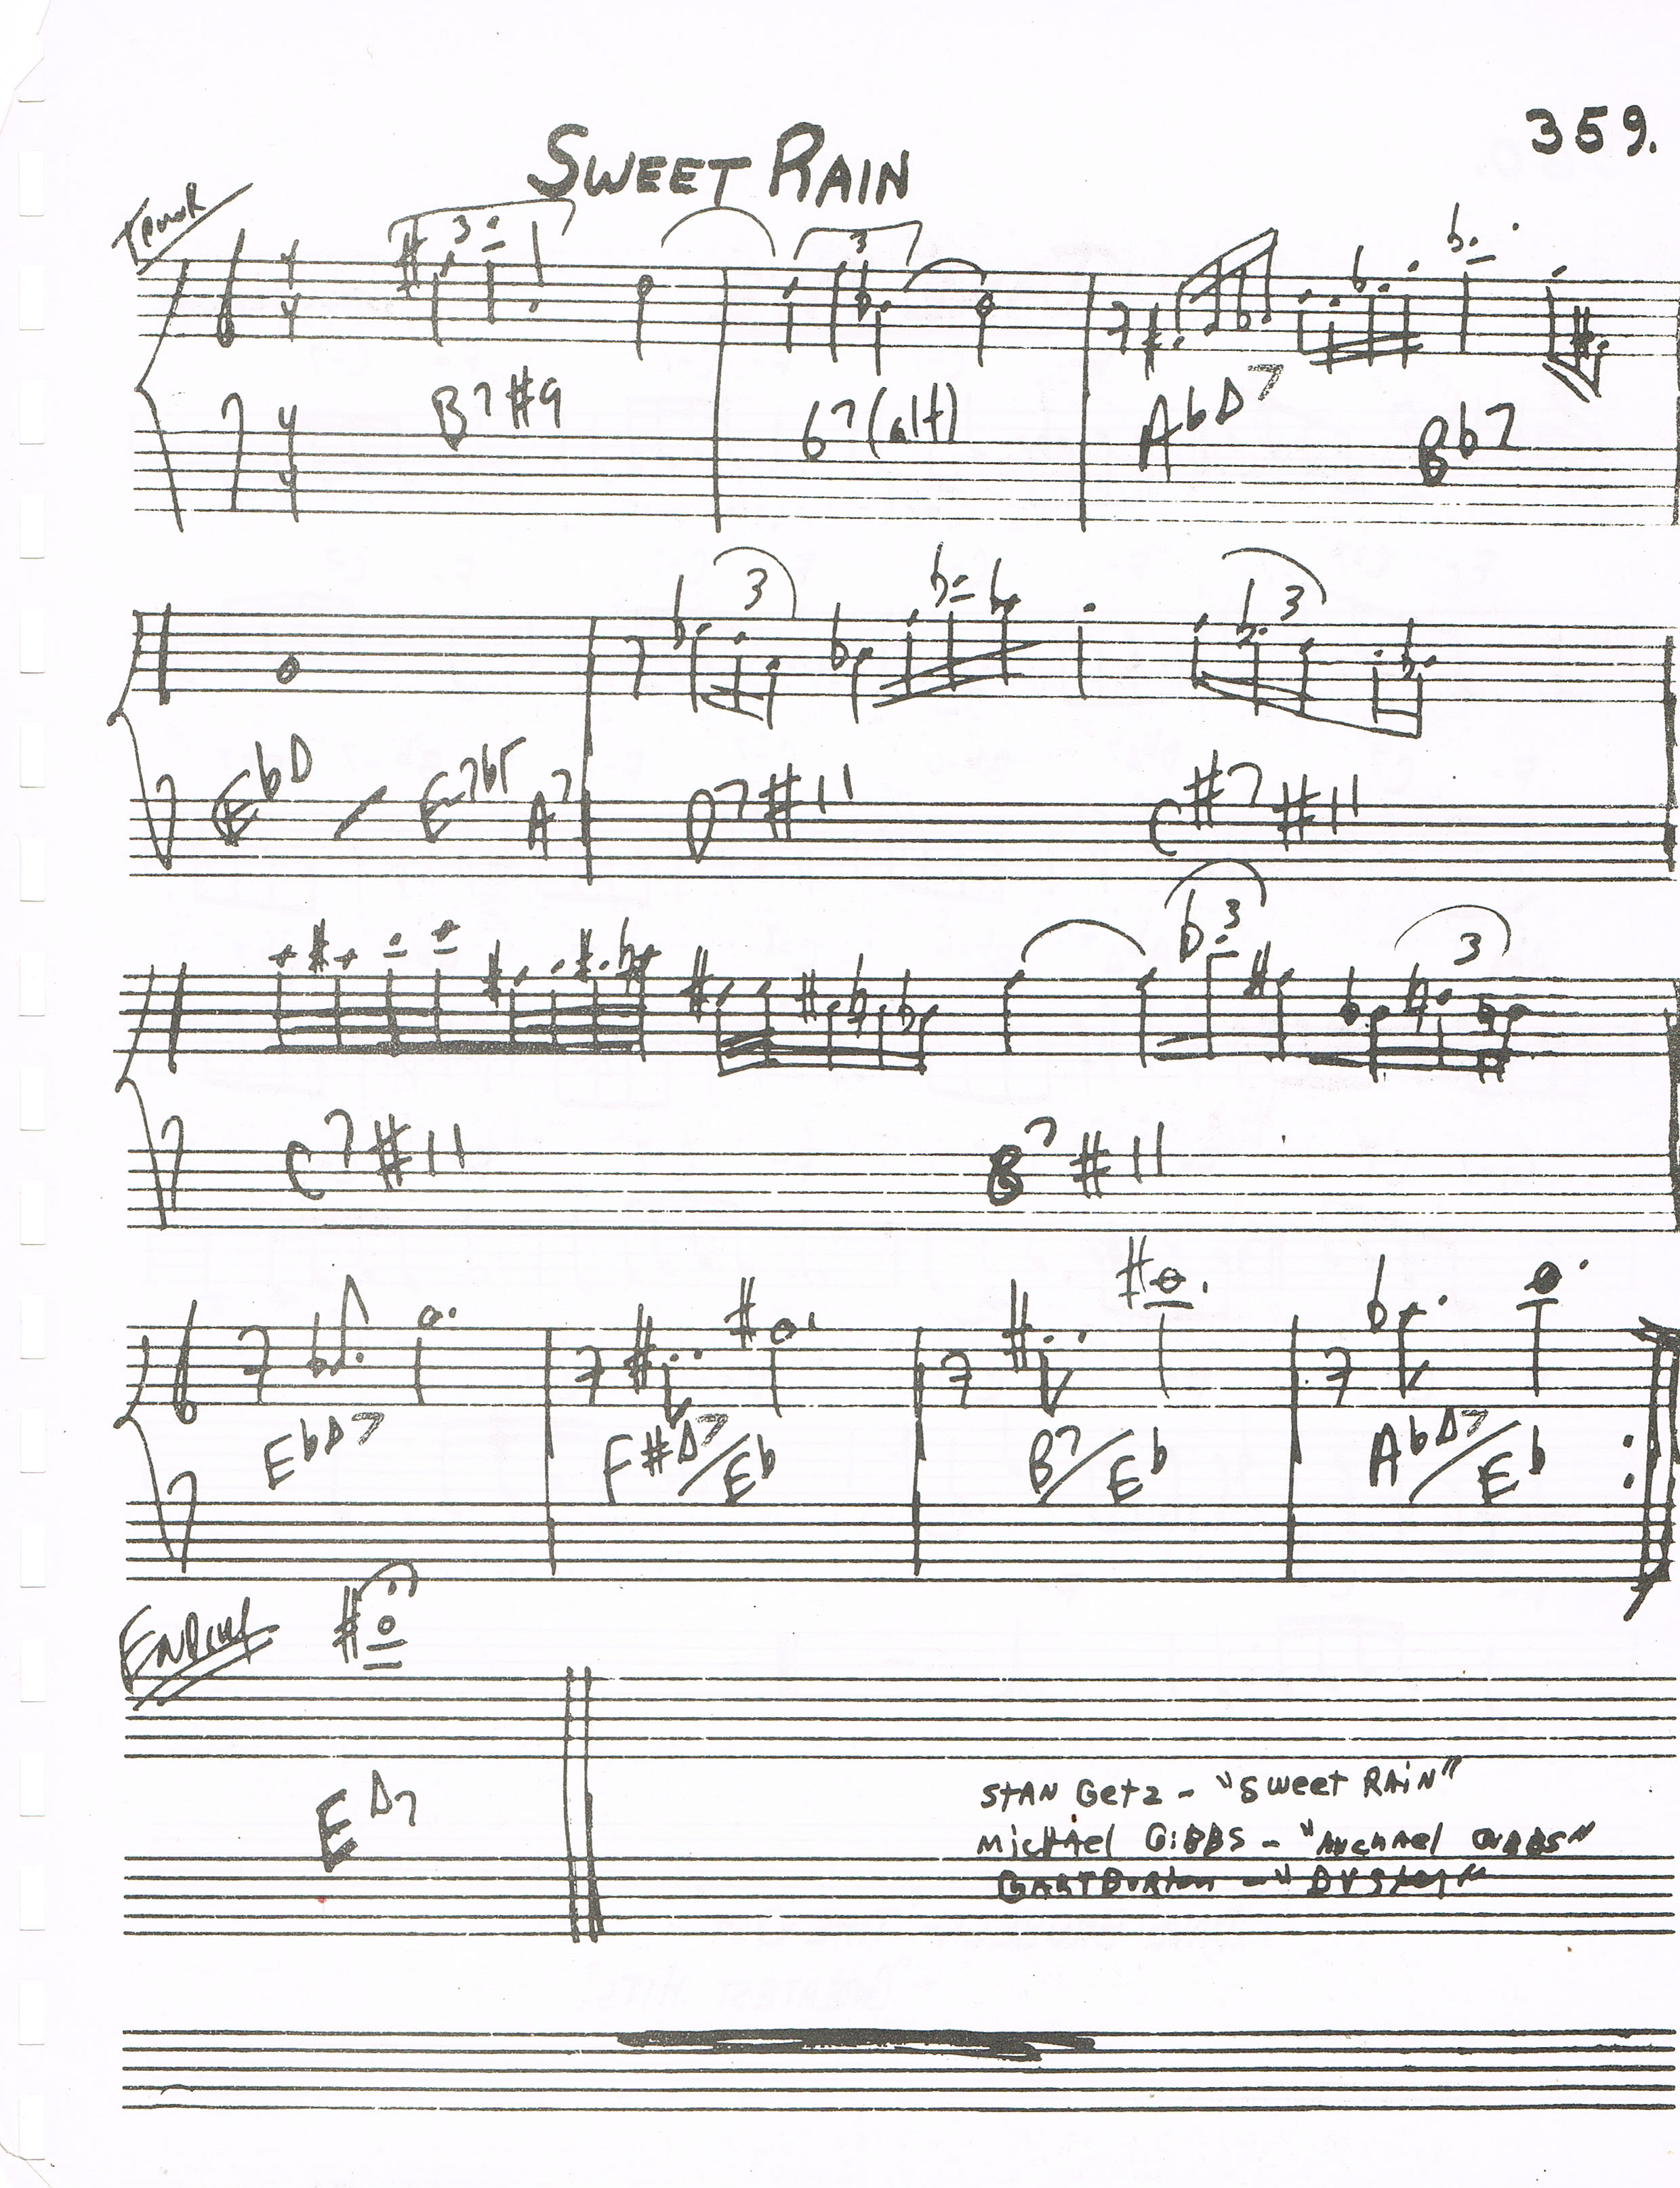 359.
SWEET RAIN
3 3
4 4
B7#9 G7(alt) AbΔ7 Bb7
4 4
3 3
EbΔ / E-7b5 A7 D7#11 C#7#11
3 3
C7#11 B7#11
EbΔ7 F#Δ7/Eb B7/Eb AbΔ7/Eb
ENDING
EΔ7
STAN Getz - "Sweet RAiN"
MicHAel GiBBS - "MicHAel GiBBS"
GARY BURton - "DUSter"